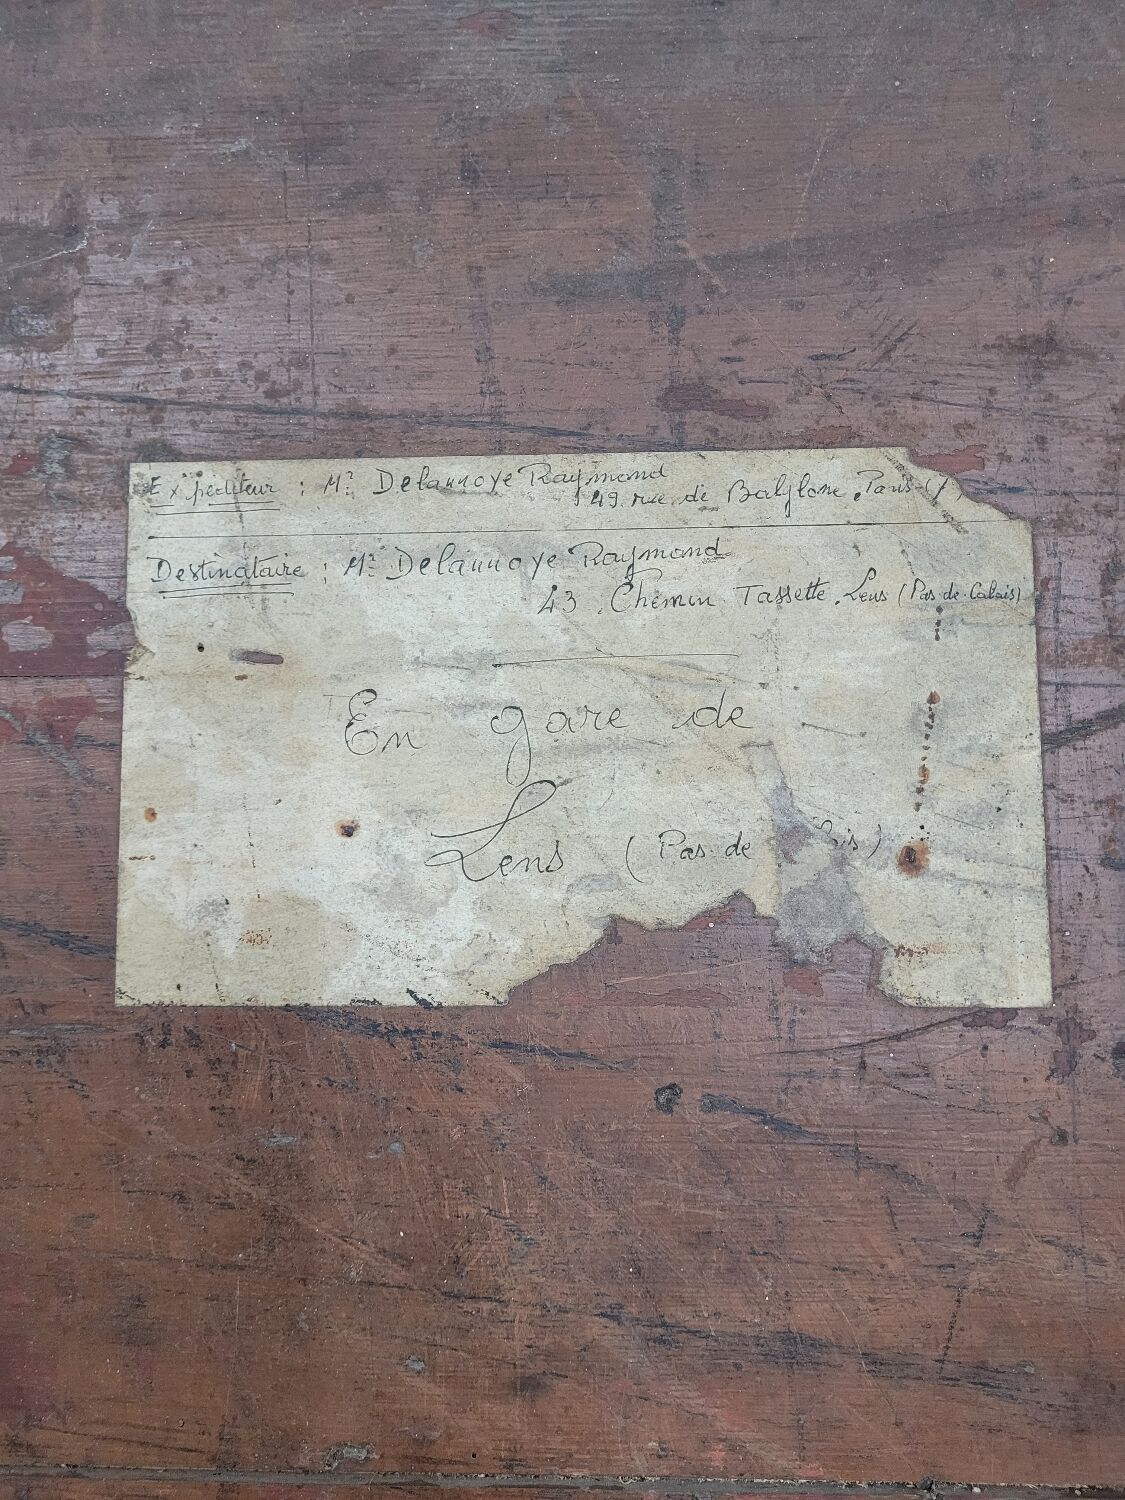 Expéditeur : Mr Delannoye Raymond
49 rue de Babylone, Paris (7
Destinataire : Mr Delannoye Raymond
43 Chemin Tassette. Lens (Pas de Calais)
En gare de
Lens (Pas de